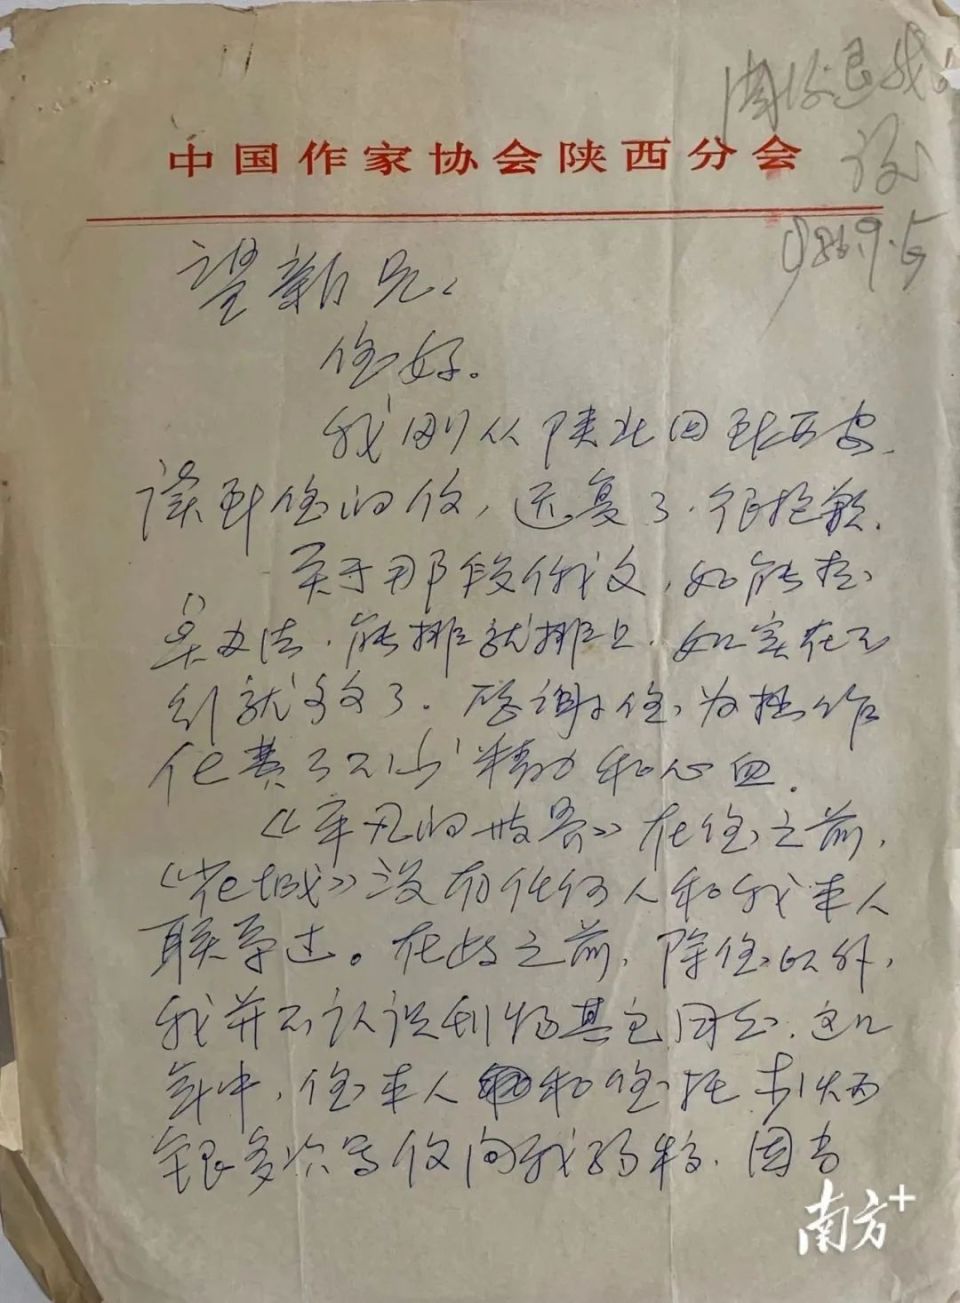 中国作家协会陕西分会
1986.9.5
望新兄、
您好。
我刚从陕北回到西安、
读到您的信，迟复了，很抱歉。
关于那段俄文，如能想
点办法，能排就排上，如实在不
行就算了。感谢您为拙作
花费了不少精力和心血。
《平凡的世界》在您之前，
《花城》没有任何人和我本人
联系过。在此之前，除您以外，
我并不认识刊物其它同志，这几
年中，您本人和您托李炳
银多次写信向我约稿，因当
南方+